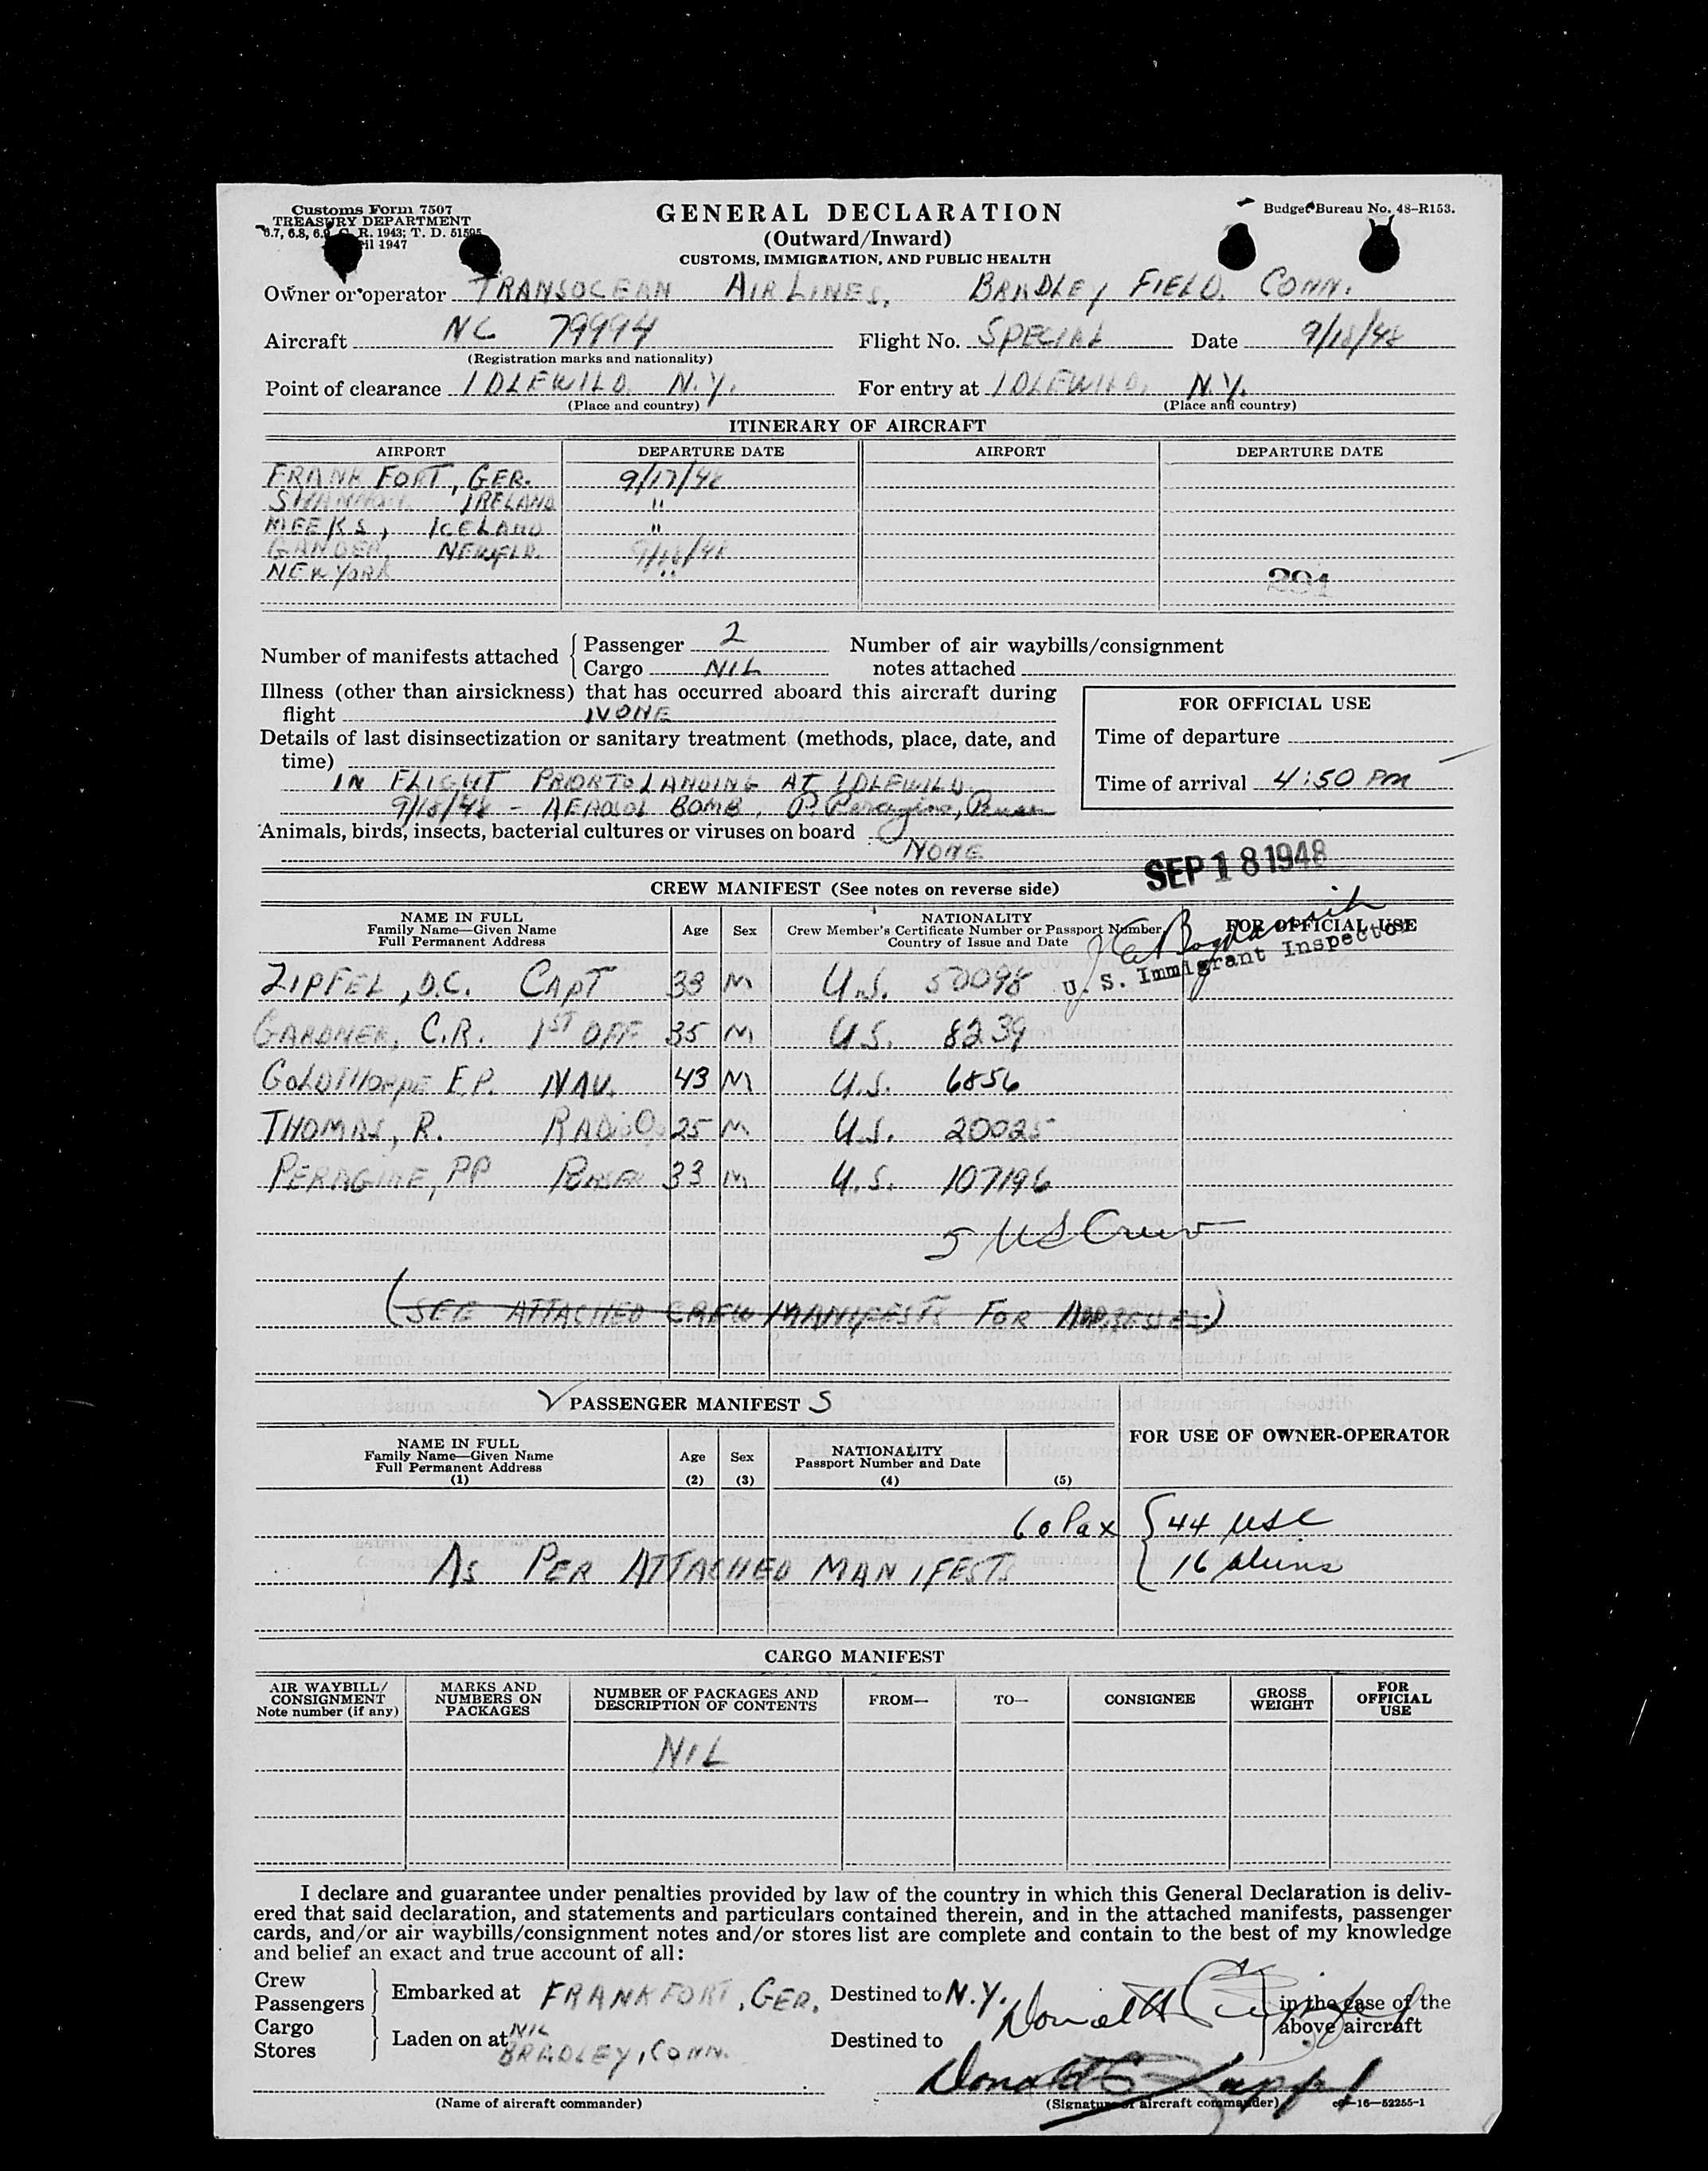 Customs Form 7507
TREASURY DEPARTMENT
6.7, 6.8, 6.9, C. R. 1943; T. D. 51595
1947
GENERAL DECLARATION
(Outward/Inward)
CUSTOMS, IMMIGRATION, AND PUBLIC HEALTH
Budget Bureau No. 48–R153.
Owner or operator TRANSOCEAN AIR LINES, BRADLEY FIELD, CONN.
Aircraft NC 79994 Flight No. SPECIAL Date 9/18/48
(Registration marks and nationality)
Point of clearance IDLEWILD, N.Y. For entry at IDLEWILD, N.Y.
(Place and country) (Place and country)
ITINERARY OF AIRCRAFT
AIRPORT DEPARTURE DATE AIRPORT DEPARTURE DATE
FRANKFORT, GER. 9/17/48
SHANNON, IRELAND "
MEEKS, ICELAND "
GANDER, NEWFLD. 9/18/48
NEW YORK "
291
Number of manifests attached { Passenger 2 Number of air waybills/consignment
Cargo NIL notes attached
Illness (other than airsickness) that has occurred aboard this aircraft during
flight NONE
FOR OFFICIAL USE
Details of last disinsectization or sanitary treatment (methods, place, date, and
time)
Time of departure
IN FLIGHT PRIOR TO LANDING AT IDLEWILD
Time of arrival 4:50 PM
9/18/48 - AEROSOL BOMB, P. Peragine, Purser
Animals, birds, insects, bacterial cultures or viruses on board
NONE
SEP 18 1948
CREW MANIFEST (See notes on reverse side)
NAME IN FULL
Family Name—Given Name
Full Permanent Address
Age Sex
NATIONALITY
Crew Member's Certificate Number or Passport Number,
Country of Issue and Date
FOR OFFICIAL USE
U. S. Immigrant Inspector
ZIPFEL, D.C. CAPT 33 M U.S. 50098
GARDNER, C.R. 1ST OFF 35 M U.S. 8239
GOLDTHORPE E.P. NAV. 43 M U.S. 6856
THOMAS, R. RADIO 25 M U.S. 20025
PERAGINE, PP PURSER 33 M U.S. 107196
5 US Crew
(SEE ATTACHED CREW MANIFESTS FOR ADDRESSES)
✓ PASSENGER MANIFEST S
NAME IN FULL
Family Name—Given Name
Full Permanent Address
(1)
Age
(2)
Sex
(3)
NATIONALITY
Passport Number and Date
(4)
(5)
FOR USE OF OWNER-OPERATOR
60 Pax { 44 USC
16 Aliens
AS PER ATTACHED MANIFESTS
CARGO MANIFEST
AIR WAYBILL/
CONSIGNMENT
Note number (if any)
MARKS AND
NUMBERS ON
PACKAGES
NUMBER OF PACKAGES AND
DESCRIPTION OF CONTENTS
FROM—
TO—
CONSIGNEE
GROSS
WEIGHT
FOR
OFFICIAL
USE
NIL
I declare and guarantee under penalties provided by law of the country in which this General Declaration is deliv-
ered that said declaration, and statements and particulars contained therein, and in the attached manifests, passenger
cards, and/or air waybills/consignment notes and/or stores list are complete and contain to the best of my knowledge
and belief an exact and true account of all:
Crew
Passengers
Embarked at FRANKFORT, GER. Destined to N.Y.
in the case of the
above aircraft
Cargo
Stores
Laden on at NIL
BRADLEY, CONN.
Destined to
(Name of aircraft commander) (Signature of aircraft commander) 16—52255-1